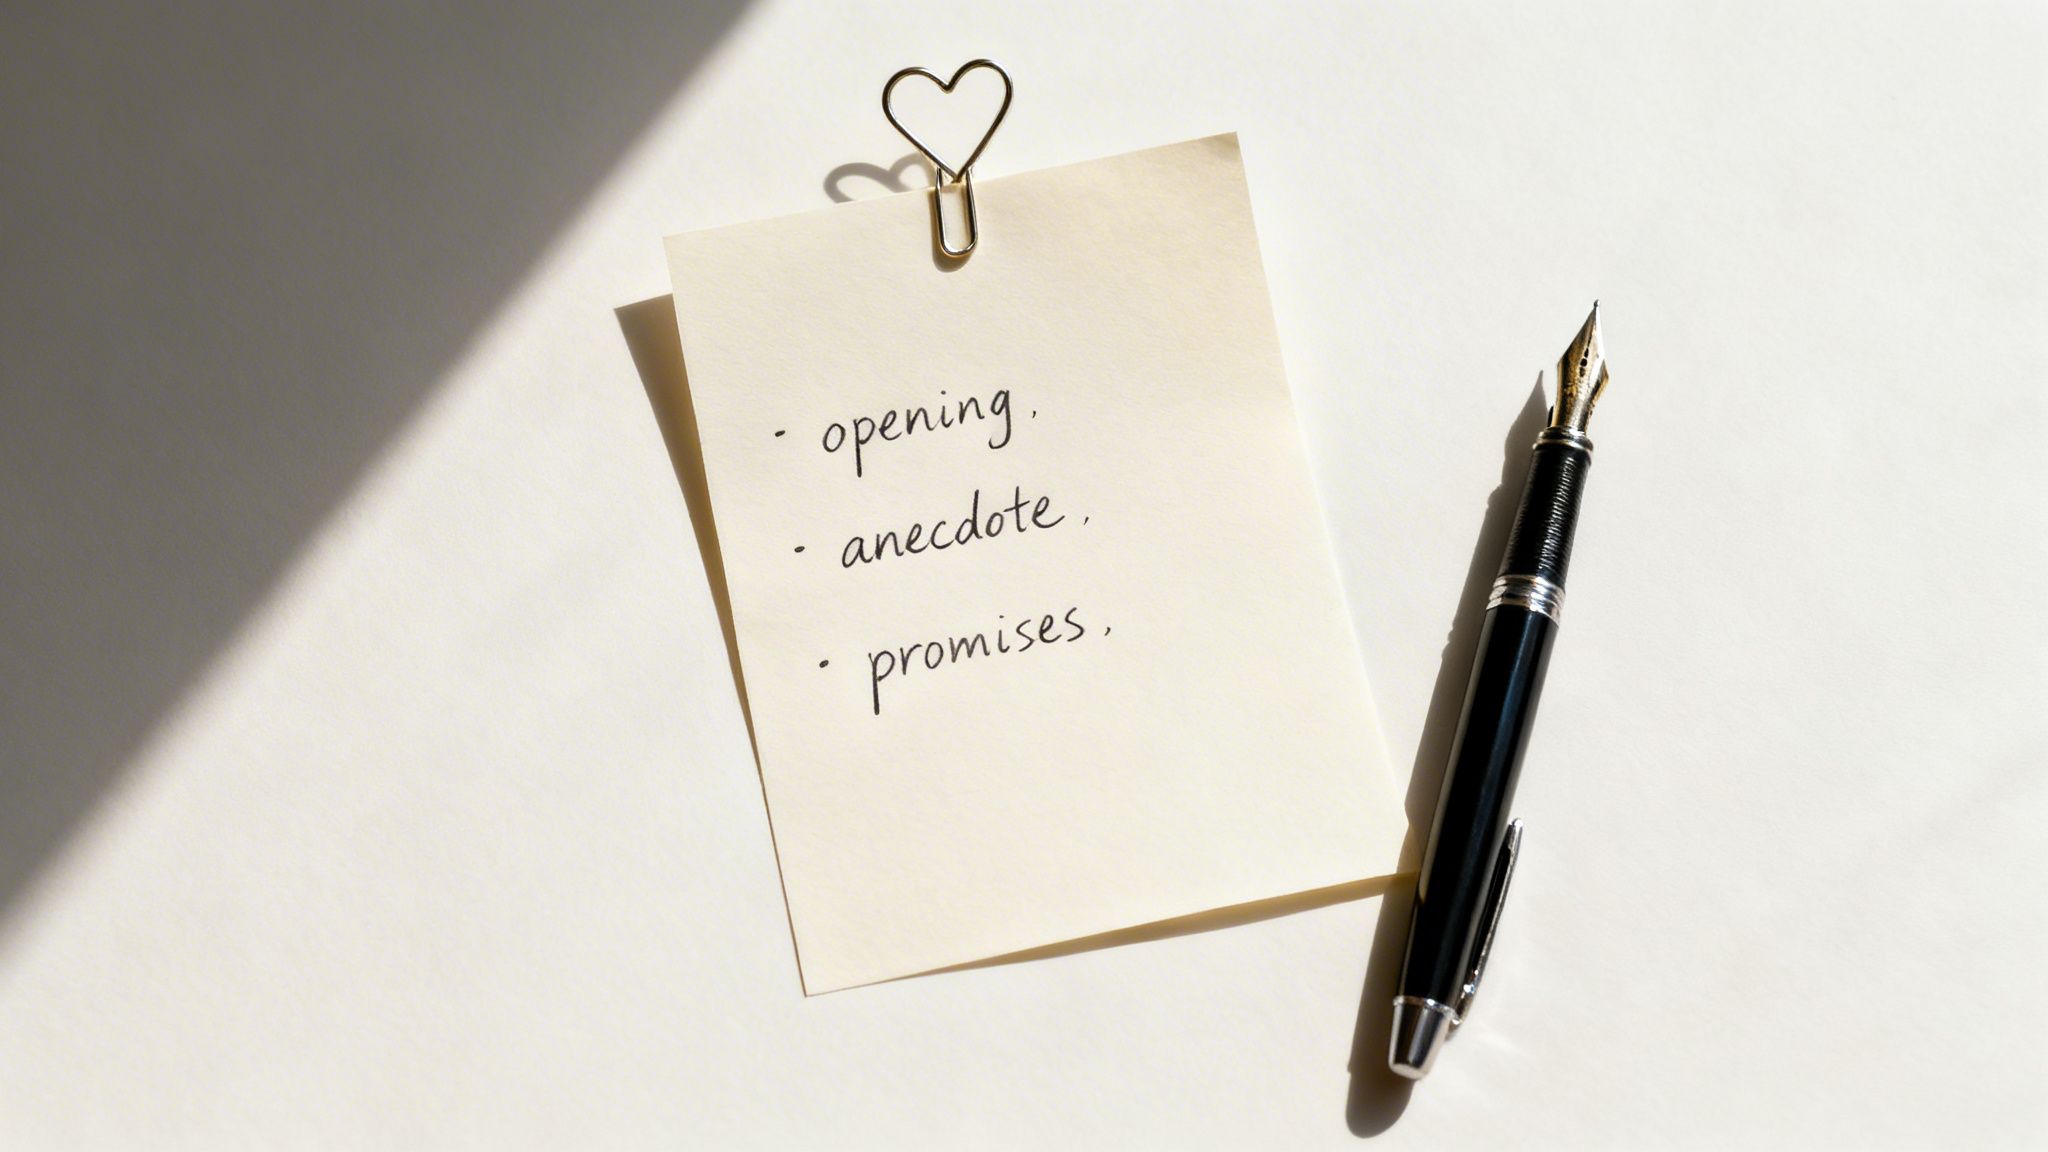 · opening,
· anecdote,
· promises,